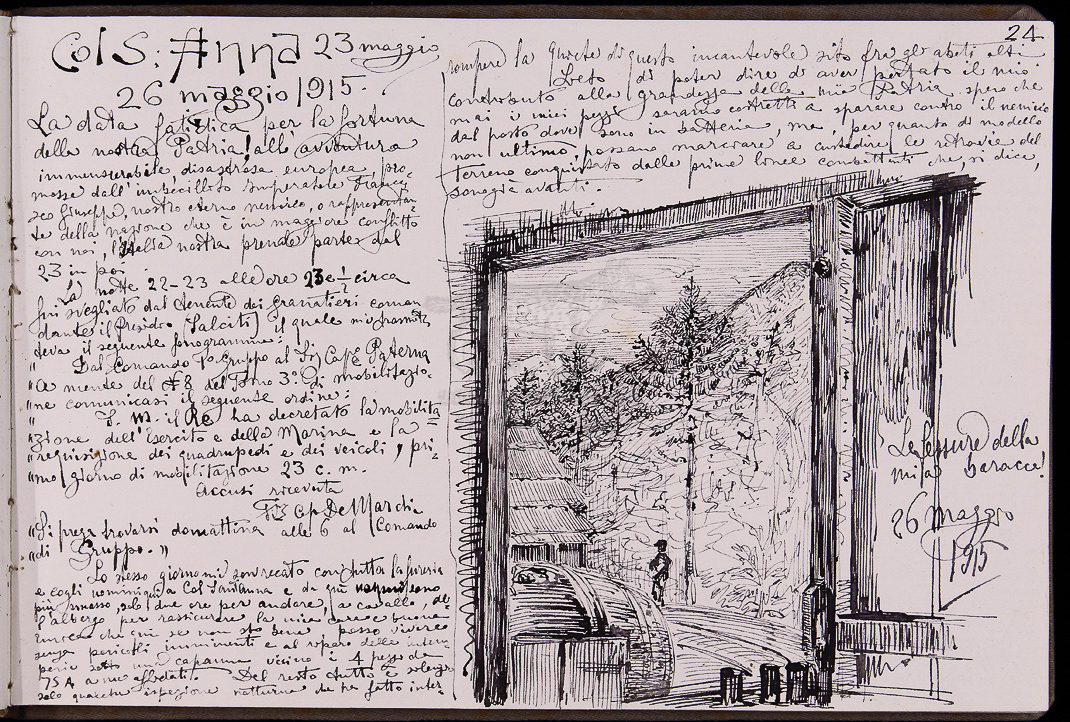 Col S: Anna 23 maggio
26 maggio 1915.
La data fatidica per la fortuna
della nostra Patria! alle avventura
immensurabile, disastrosa europea, pro-
mossa dall'imbecillotto Imperatore France-
sco Giuseppe, nostro eterno nemico, o rappresentan-
te della nazione che è in maggiore conflitto
con noi, l'Italia nostra prende parte dal
23 in poi.
La notte 22-23 alle ore 23 e ½ circa
fui svegliato dal tenente dei granatieri coman
dante il Presidio (Salciti) il quale mi trasmet
teva il seguente fonogramma:
" Dal Comando 1º gruppo al Sig. Capº Paterna
"A mente del # 8 del Tomo 3º di mobilitazio-
"ne comunicasi il seguente ordine:
" S. M. il Re ha decretato la mobilita
"zione dell'Esercito e della Marina e la
"requisizione dei quadrupedi e dei veicoli, pri-
"mo giorno di mobilitazione 23 c. m.
Accusi ricevuta
Cap. De Marchi
"Si prega trovarsi domattina alle 6 al Comando
"di Gruppo."
Lo stesso giorno mi son recato con tutta la
e cogli uomini a Col Sant'Anna e da qui
più smosso, solo due ore per andare, a cavallo, al-
l'albergo per rassicurare la mia cara e buona
che qui se non sto bene posso vivere
senza pericoli imminenti e al riparo delle intem
perie sotto una capanna vicino i 4 pezzi da
75 A a me affidati. Del resto tutto è silenzio
solo qualche ispezione notturna da me fatta inter
24
rompere la quiete di questo incantevole sito fra gli abeti alti
Lieto di poter dire di aver portato il mio
contributo alla grandezza della mia Patria spero che
mai i miei pezzi saranno costretti a sparare contro il nemico
dal posto dove sono in batteria, ma, per quanto di modello
non ultimo, possano marciare a custodire le retrovie del
terreno conquistato dalle prime linee combattenti che, si dice,
sono già avanti.
Le fessure della
mia baracca!
26 maggio
1915